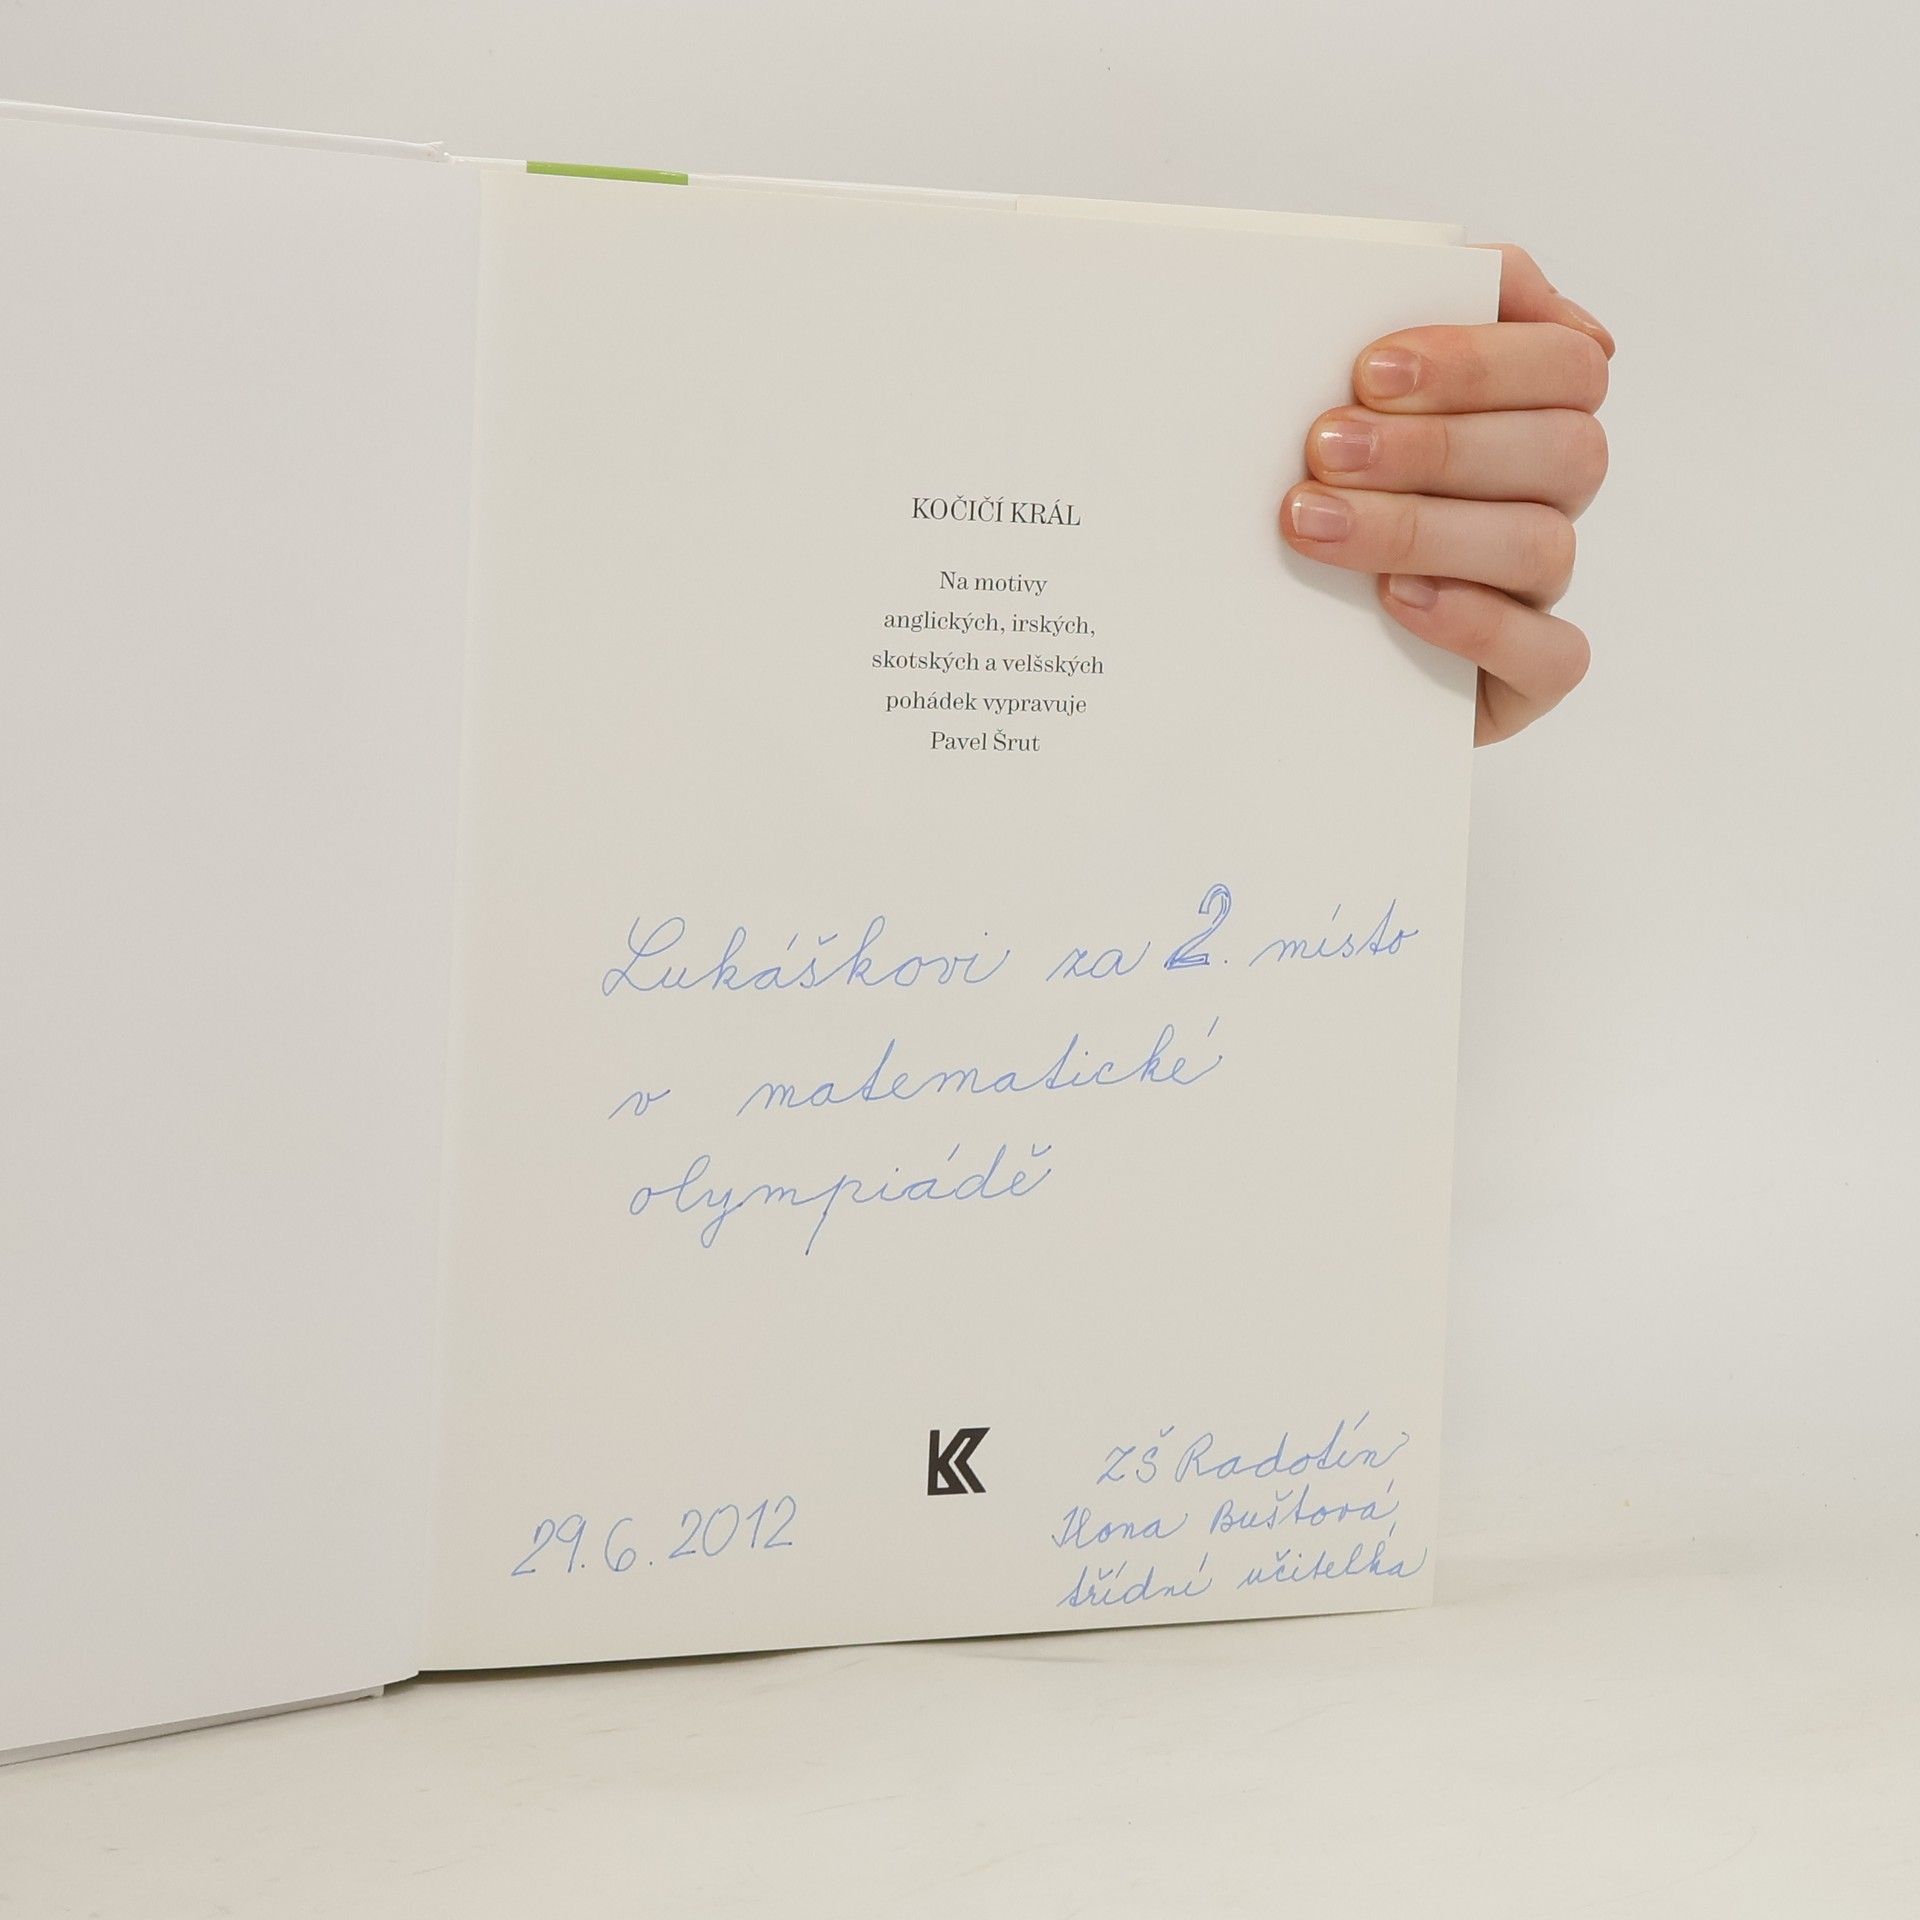 KOČIČÍ KRÁL
Na motivy
anglických, irských,
skotských a velšských
pohádek vypravuje
Pavel Šrut
Lukáškovi za 2. místo
v matematické
olympiádě
29.6.2012
ZŠ Radotín
Ilona Buštová,
třídní učitelka